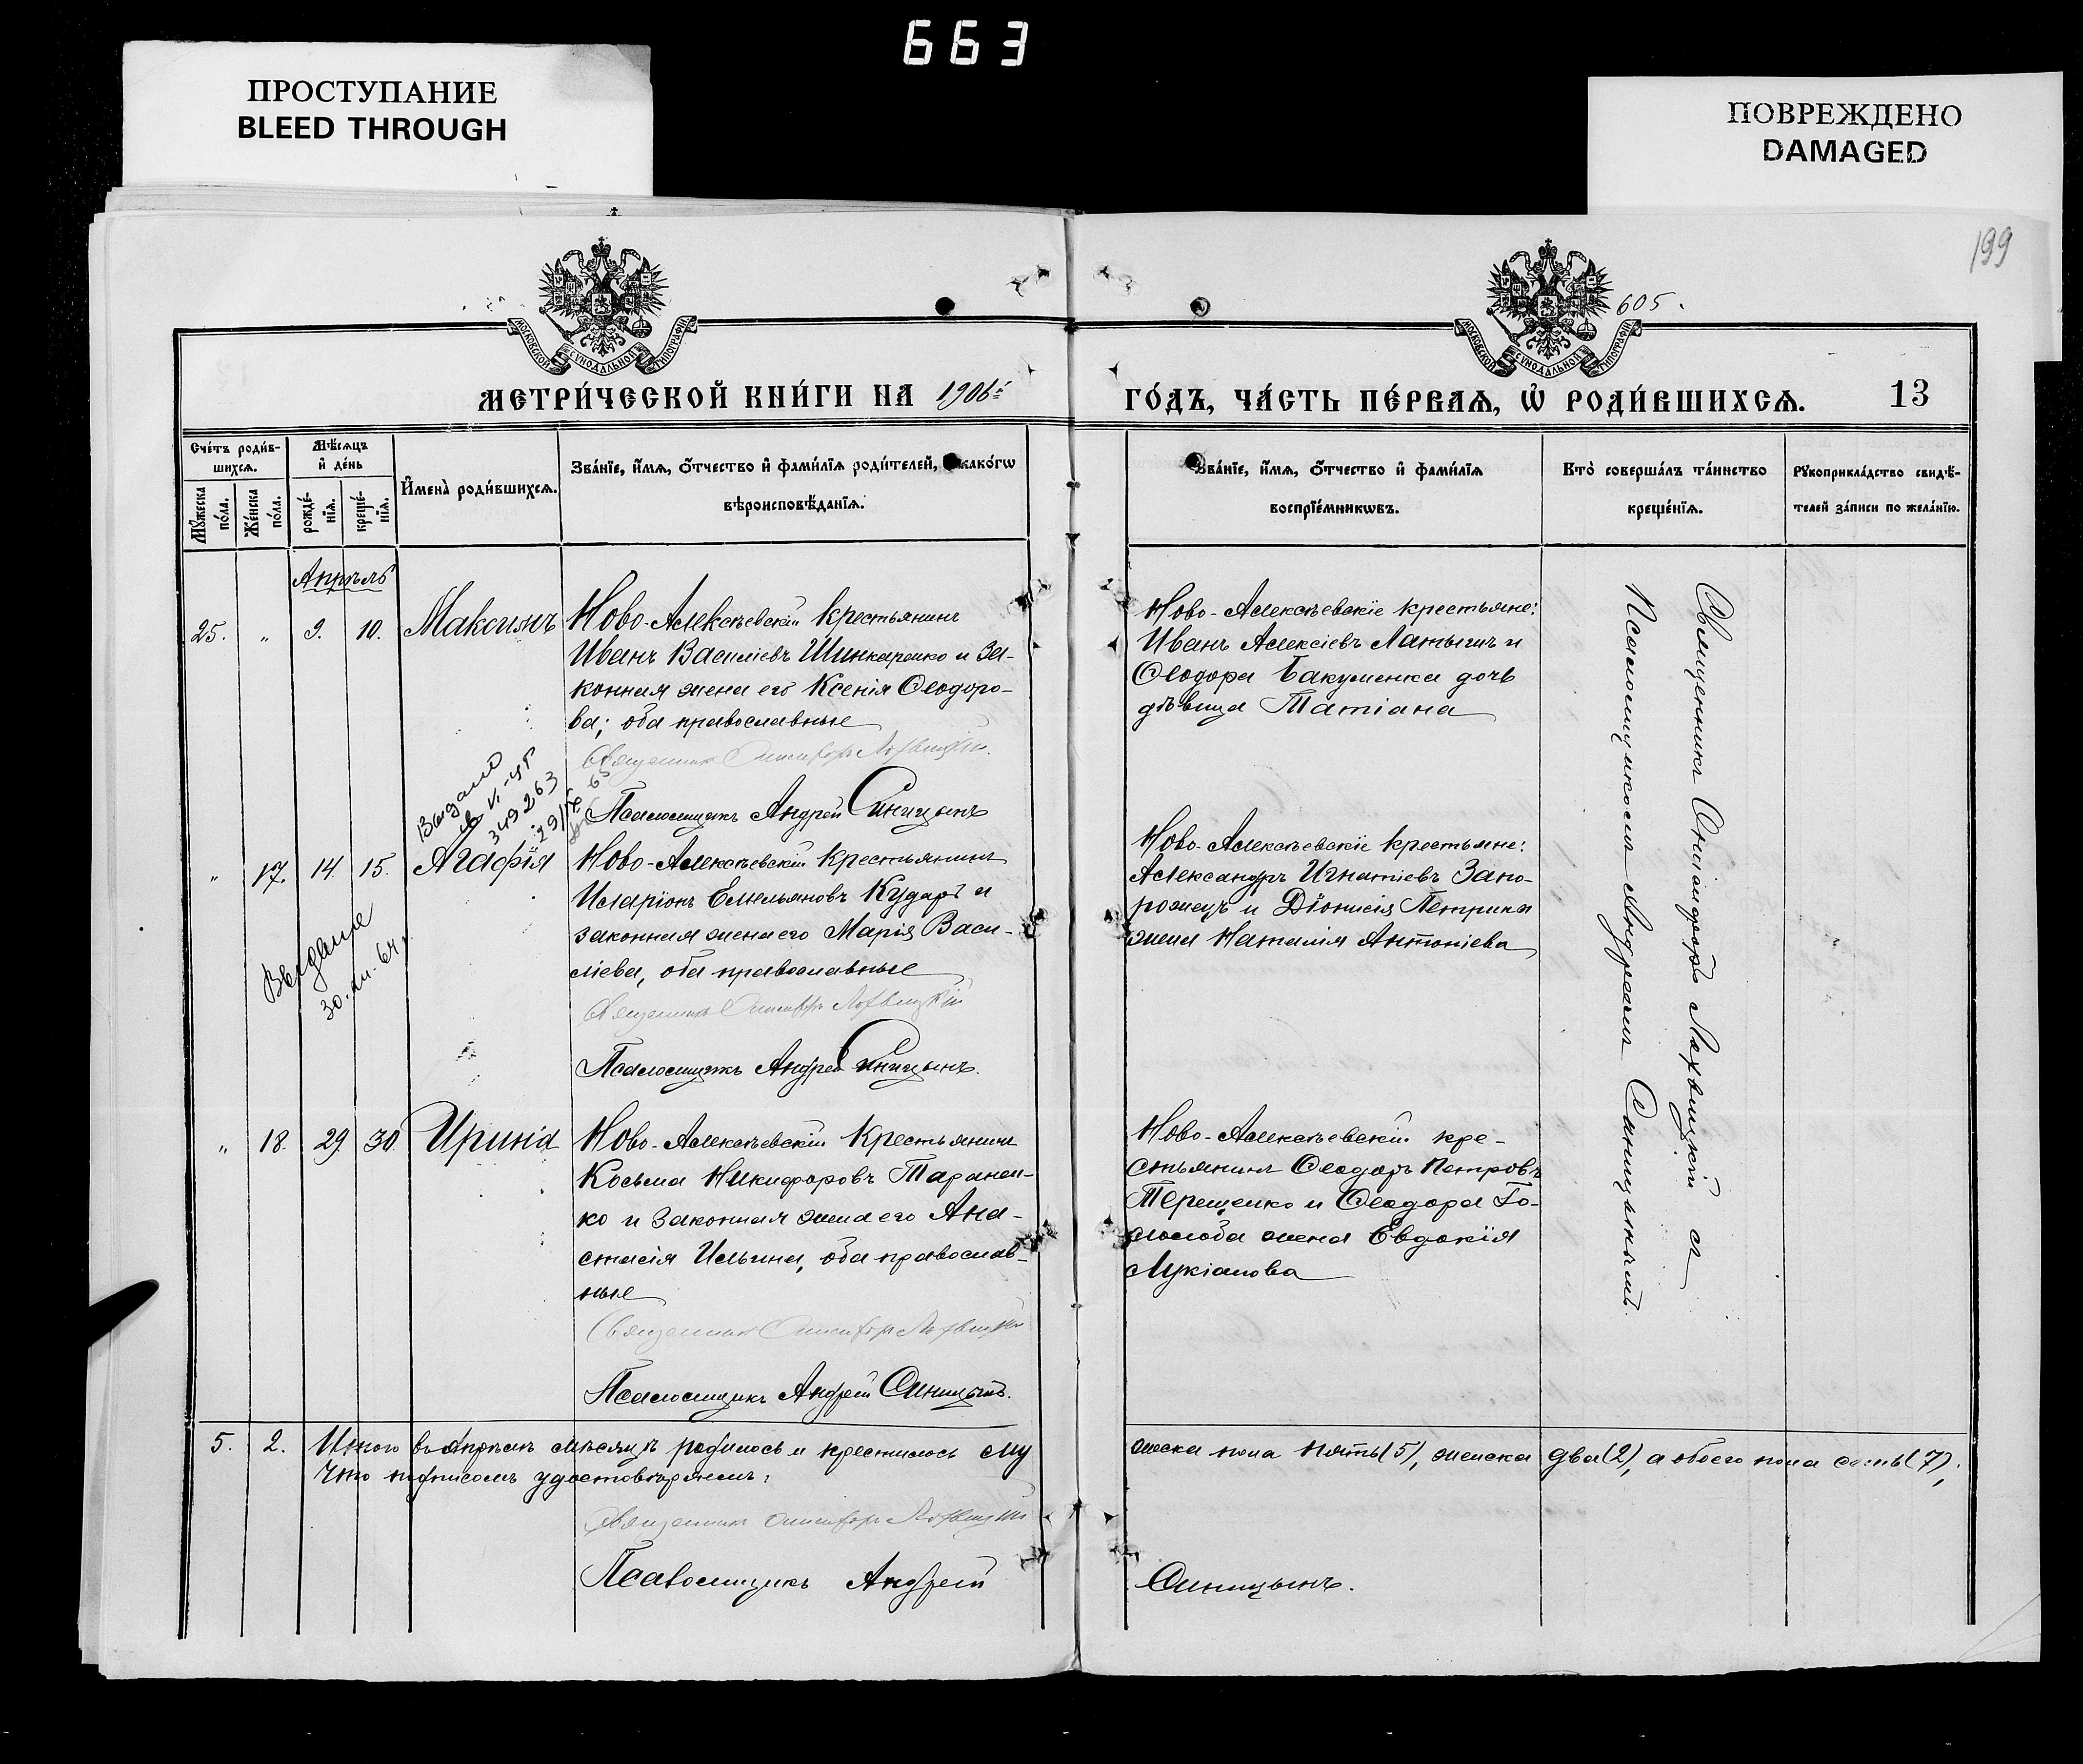 663
ПРОСТУПАНИЕ
BLEED THROUGH
ПОВРЕЖДЕНО
DAMAGED
199
605.
МОСКОВСКОЙ СУНОДАЛЬНОЙ ТИПОГРАФІИ
МОСКОВСКОЙ СУНОДАЛЬНОЙ ТИПОГРАФІИ
МЕТРИ́ЧЕСКОЙ КНИ́ГИ НА 1906й
ГО́ДЪ, ЧА́СТЬ ПЕ́РВАѦ, Ѡ҆ РОДИ́ВШИХСѦ. 13
Сче́тъ роди́в-
шихсѧ.
Мꙋ́жеска по́ла.
Же́нска по́ла.
Мѣ́сѧцъ
и҆ де́нь
рожде́-
нїѧ.
креще́-
нїѧ.
И҆мена̀ роди́вшихсѧ.
Зва́нїе, и҆́мѧ, ѻ҆́тчество и҆ фами́лїѧ роди́телей, и҆ како́гѡ
вѣроисповѣ́данїѧ.
Зва́нїе, и҆́мѧ, ѻ҆́тчество и҆ фами́лїѧ
воспрїе́мникѡвъ.
Кто̀ соверша́лъ та́инство
креще́нїѧ.
Рꙋкоприкла́дство свидѣ́-
телей за́писи по жела́нїю.
Апрѣль
25. " 9. 10. Максимъ
Ново-Алексѣевскій крестьянинъ
Иванъ Василіевъ Шинкаренко и за-
конная жена его Ксенія Ѳеодоро-
ва; оба православные
Священникъ Онисифоръ Лохвицкій.
Псаломщикъ Андрей Синицынъ
Ново-Алексѣевскіе крестьяне:
Иванъ Алексіевъ Латышъ и
Ѳеодора Бакуменка дочь
дѣвица Татіана
Выдано
349263
" 17. 14. 15. Агафія
Выдана
Ново-Алексѣевскій крестьянинъ
Иларіонъ Емельяновъ Кударь и
законная жена его Марія Васи-
ліева, оба православные
Священникъ Онисифоръ Лохвицкій
Псаломщикъ Андрей Синицынъ.
Ново-Алексѣевскіе крестьяне:
Александръ Игнатіевъ Запо-
рожецъ и Діонисія Петрика
жена Наталія Антоніева
" 18. 29. 30. Ирина
Ново-Алексѣевскій крестьянинъ
Косьма Никифоровъ Таранен-
ко и законная жена его Ана-
стасія Ильина, оба православ-
ные
Священникъ Онисифоръ Лохвицкій
Псаломщикъ Андрей Синицынъ.
Ново-Алексѣевскій кре-
стьянинъ Ѳеодоръ Петровъ
Терещенко и Ѳеодора Го-
лолоба жена Евдокія
Лукіанова
Священникъ Онисифоръ Лохвицкій съ
Псаломщикомъ Андреемъ Синицынымъ.
5. 2. Итого въ Апрѣлѣ мѣсяцѣ родилось и крестилось му
жеска пола пять (5), женска два (2), а обоего пола семь (7),
Что подписомъ удостовѣряемъ:
Священникъ Онисифоръ Лохвицкій
Псаломщикъ Андрей
Синицынъ.